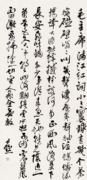 毛主席满江红词小小寰球有几个苍
蝇碰壁嗡嗡叫几声凄厉几声抽泣蚂蚁缘
槐夸大国蚍蜉撼树谈何易正西风落叶下
长安飞鸣镝多少事从来急天地转光阴迫一
万年太久只争朝夕四海翻腾云水怒五洲震荡风
雷激要扫除一切害人虫全无敌